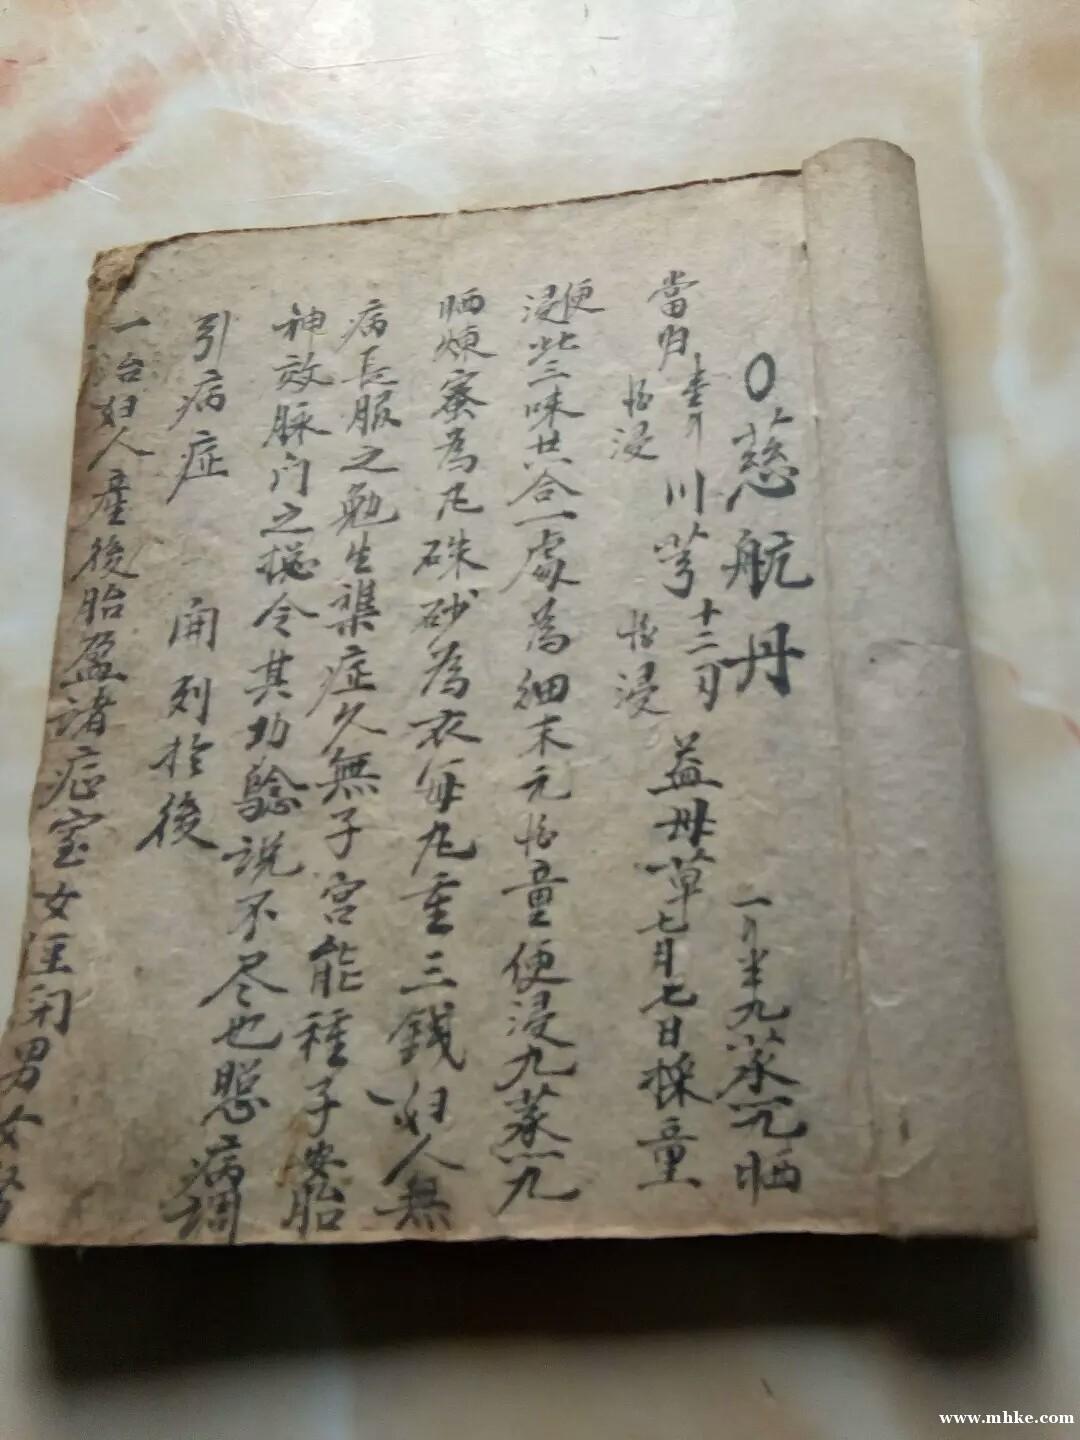 〇慈航丹 一斤半九蒸九晒
當归 壹斤 怡浸 川芎 十二刃 怡浸 益母草七月七日採童
便浸些三味共合一處為细末元怡童便浸九蒸九
晒煉蜜為凡硃砂為衣每九重三錢妇人無
病長服之勉生襍症久無子宮能種子安胎
神效脉门之總令其功驗説不尽也照病调
引病症 開列於後
一治妇人產後胎盈諸症室女闭男女
www.mhke.com